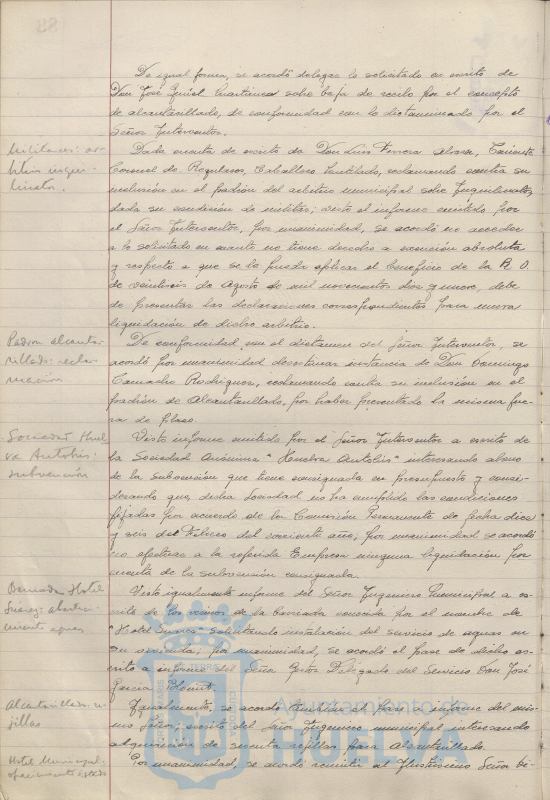 De igual forma, se acordó delegar lo solicitado en escrito de
Don José Martínez sobre baja de recibo por el concepto
de alcantarillado, de conformidad con lo dictaminado por el
Señor Interventor.
Militares: ar-
bitrio inqui-
linato.
Dada cuenta de escrito de Don Luis Teniente
Coronel de Regulares, Caballero Mutilado, reclamando contra su
inclusión en el padrón del arbitrio municipal sobre Inquilinato,
dada su condición de militar; visto el informe emitido por
el Señor Interventor, por unanimidad, se acordó no acceder
a lo solicitado en cuanto no tiene derecho a exención absoluta
y respecto a que se le pueda aplicar el beneficio de la R. O.
de veintiseis de agosto de mil novecientos diez y nueve, debe
de presentar las declaraciones correspondientes para nueva
liquidación de dicho arbitrio.
Padrón alcanta-
rillado: recla-
mación
De conformidad con el dictamen del Señor Interventor, se
acordó por unanimidad desestimar instancia de Don Domingo
Camacho Rodríguez, reclamando contra su inclusión en el
padrón de Alcantarillado, por haber presentado la misma fue-
ra de plazo.
Sociedad Huel-
va Autobús:
subvención
Visto informe emitido por el Señor Interventor a escrito de
la Sociedad Anónima "Huelva interesando abono
de la subvención que tiene consignada en presupuesto y consi-
derando que dicha Sociedad no ha cumplido las condiciones
fijadas por acuerdo de la Comisión Permanente de fecha diez
y seis del Febrero del corriente año, por unanimidad se acordó
no efectuar a la referida Empresa ninguna liquidación por
cuenta de la subvención consignada.
Barriada Hotel
Suarez: abasteci-
miento aguas
Visto igualmente informe del Señor Ingeniero Municipal a es-
crito de los vecinos de la barriada conocida por el nombre de
"Hotel Suarez" solicitando instalación del servicio de aguas en
su vivienda; por unanimidad, se acordó el pase de dicho es-
crito a informe del Señor Gestor Delegado del Servicio Don José
García
Alcantarillado: re-
jillas
Igualmente, se acordó también el pase a informe del mis-
mo Señor, escrito del Señor Ingeniero municipal interesando
adquisición de rejillas para Alcantarillado.
Hotel Municipal:
ofrecimiento Estado
Por unanimidad, se acordó remitir al Ilustrísimo Señor Di-
Ayuntamiento de
HUELVA
PORTUS MARIS
ET TERRAE
CUSTODIA